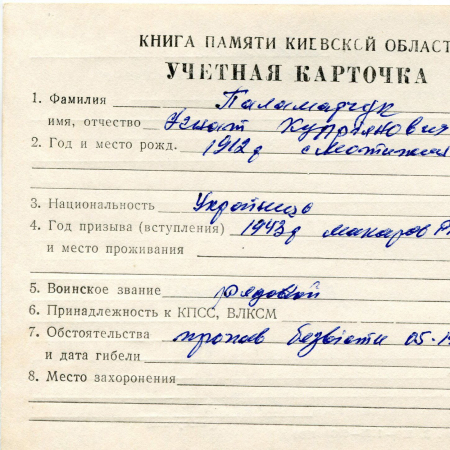 КНИГА ПАМЯТИ КИЕВСКОЙ ОБЛАСТ
УЧЕТНАЯ КАРТОЧКА
1. Фамилия Паламарчук
имя, отчество Игнат Купріянович
2. Год и место рожд. 1912р с Мотижин
3. Национальность Українць
4. Год призыва (вступления) 1943р макаров
и место проживания
5. Воинское звание рядовой
6. Принадлежность к КПСС, ВЛКСМ
7. Обстоятельства пропав безвісти 05-1
и дата гибели
8. Место захоронения